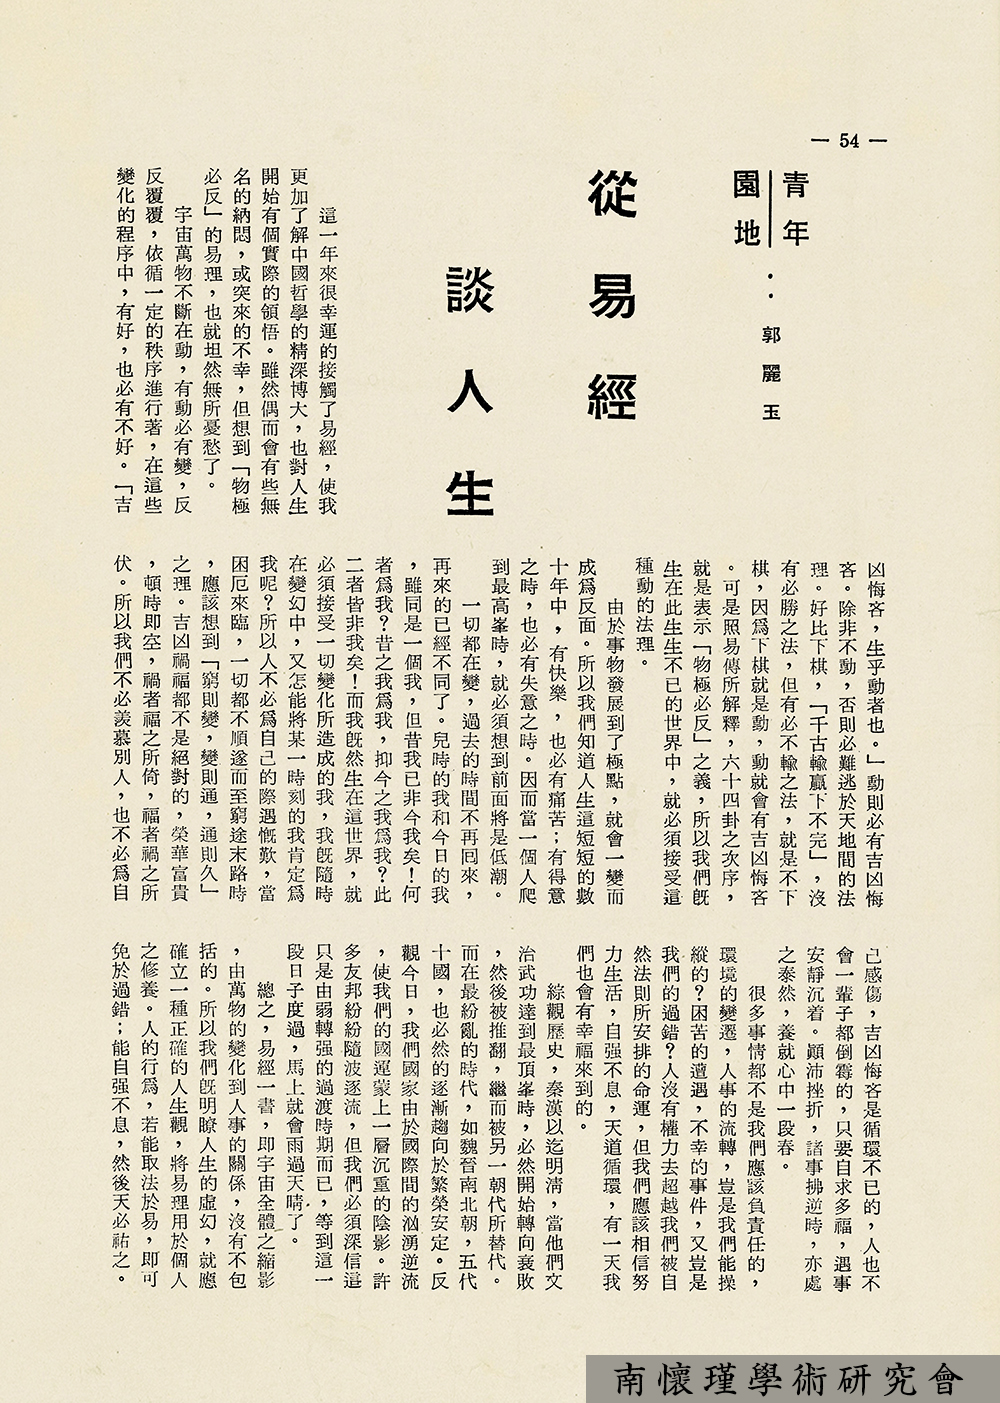 — 54 —
青年
園地
：郭麗玉
從易經
談人生
這一年來很幸運的接觸了易經，使我
更加了解中國哲學的精深博大，也對人生
開始有個實際的領悟。雖然偶而會有些無
名的納悶，或突來的不幸，但想到「物極
必反」的易理，也就坦然無所憂愁了。
宇宙萬物不斷在動，有動必有變，反
反覆覆，依循一定的秩序進行著，在這些
變化的程序中，有好，也必有不好。「吉
凶悔吝，生乎動者也。」動則必有吉凶悔
吝。除非不動，否則必難逃於天地間的法
理。好比下棋，「千古輸贏下不完」，沒
有必勝之法，但有必不輸之法，就是不下
棋，因爲下棋就是動，動就會有吉凶悔吝
。可是照易傳所解釋，六十四卦之次序，
就是表示「物極必反」之義，所以我們旣
生在此生生不已的世界中，就必須接受這
種動的法理。
由於事物發展到了極點，就會一變而
成爲反面。所以我們知道人生這短短的數
十年中，有快樂，也必有痛苦；有得意
之時，也必有失意之時。因而當一個人爬
到最高峯時，就必須想到前面將是低潮。
一切都在變，過去的時間不再囘來，
再來的已經不同了。兒時的我和今日的我
，雖同是一個我，但昔我已非今我矣！何
者爲我？昔之我爲我，抑今之我爲我？此
二者皆非我矣！而我旣然生在這世界，就
必須接受一切變化所造成的我，我旣隨時
在變幻中，又怎能將某一時刻的我肯定爲
我呢？所以人不必爲自己的際遇慨歎，當
困厄來臨，一切都不順遂而至窮途末路時
，應該想到「窮則變，變則通，通則久」
之理。吉凶禍福都不是絕對的，榮華富貴
，頓時即空，禍者福之所倚，福者禍之所
伏。所以我們不必羨慕別人，也不必爲自
己感傷，吉凶悔吝是循環不已的，人也不
會一輩子都倒霉的，只要自求多福，遇事
安靜沉着。顚沛挫折，諸事拂逆時，亦處
之泰然，養就心中一段春。
很多事情都不是我們應該負責任的，
環境的變遷，人事的流轉，豈是我們能操
縱的？困苦的遭遇，不幸的事件，又豈是
我們的過錯？人沒有權力去超越我們被自
然法則所安排的命運，但我們應該相信努
力生活，自强不息，天道循環，有一天我
們也會有幸福來到的。
綜觀歷史，秦漢以迄明淸，當他們文
治武功達到最頂峯時，必然開始轉向衰敗
，然後被推翻，繼而被另一朝代所替代。
而在最紛亂的時代，如魏晉南北朝，五代
十國，也必然的逐漸趨向於繁榮安定。反
觀今日，我們國家由於國際間的汹湧逆流
，使我們的國運蒙上一層沉重的陰影。許
多友邦紛紛隨波逐流，但我們必須深信這
只是由弱轉强的過渡時期而已，等到這一
段日子度過，馬上就會雨過天晴了。
總之，易經一書，即宇宙全體之縮影
，由萬物的變化到人事的關係，沒有不包
括的。所以我們旣明瞭人生的虛幻，就應
確立一種正確的人生觀，將易理用於個人
之修養。人的行爲，若能取法於易，即可
免於過錯；能自强不息，然後天必祐之。
南懷瑾學術研究會